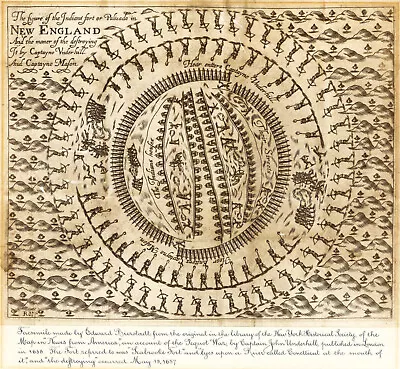 The figure of the Indians fort or Palizado in
NEW ENGLAND
And the maner of the destroying
It by Captayne Vnderhill
And Captayne Mason
Facsimile made by Edward Bierstadt from the original in the library of the New York Historical Society of the
Map in "Newes from America," an account of the Pequot War, by Captain John Underhill, published in London
in 1638. The Fort referred to was "Seabrooke Fort" and "lyes upon a River called Conetticut at the mouth of
it," and "the destroying" occurred May 1637
RH